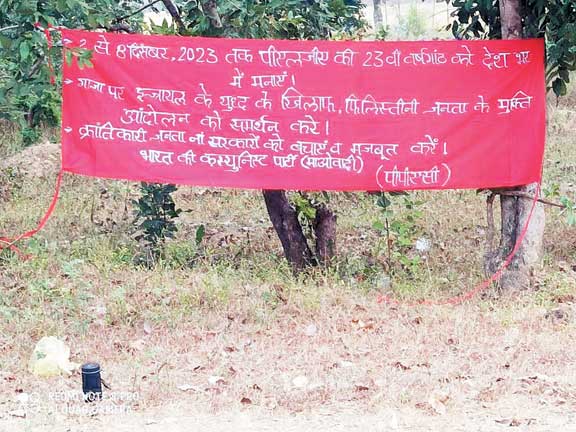 • 2 से 8 दिसंबर, 2023 तक पीएलजीए की 23वीं वर्षगांठ को देश भर
में मनाएं।
• गाजा पर इजरायल के युद्ध के खिलाफ, फिलिस्तीनी जनता के मुक्ति
आंदोलन को समर्थन करें।
• क्रांतिकारी जनता ना सरकारों को बचाएं व मजबूत करें।
भारत की कम्युनिस्ट पार्टी (माओवादी)
(पीपीएससी)
REDMI NOTE 5 PRO
AI QUAD CAMERA